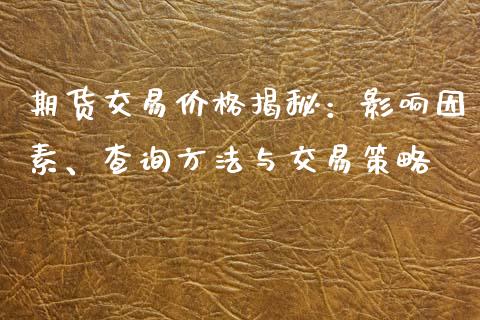 期货交易价格揭秘：影响因
素、查询方法与交易策略